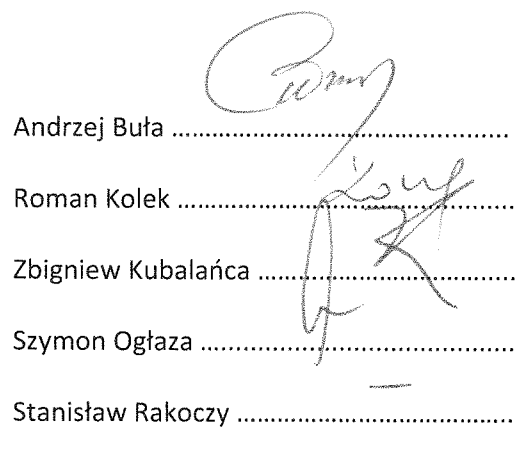 Andrzej Buła ..........................................
Roman Kolek ..........................................
Zbigniew Kubalańca ................................
Szymon Ogłaza .......................................
Stanisław Rakoczy ..................................